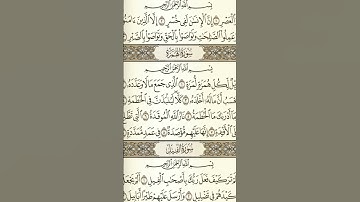 بِسْمِ ٱللَّهِ ٱلرَّحْمَٰنِ ٱلرَّحِيمِ
ٱلْعَصْرِ ١ إِنَّ ٱلْإِنسَٰنَ لَفِى خُسْرٍ ٢ إِلَّا ٱلَّذِينَ ءَامَنُوا۟
عَمِلُوا۟ ٱلصَّٰلِحَٰتِ وَتَوَاصَوْا۟ بِٱلْحَقِّ وَتَوَاصَوْا۟ بِٱلصَّبْرِ ٣
سُورَةُ ٱلْهُمَزَةِ
بِسْمِ ٱللَّهِ ٱلرَّحْمَٰنِ ٱلرَّحِيمِ
يْلٌ لِّكُلِّ هُمَزَةٍ لُّمَزَةٍ ١ ٱلَّذِى جَمَعَ مَالًا وَعَدَّدَهُۥ ٢
سَبُ أَنَّ مَالَهُۥٓ أَخْلَدَهُۥ ٣ كَلَّا لَيُنۢبَذَنَّ فِى ٱلْحُطَمَةِ ٤
أَدْرَىٰكَ مَا ٱلْحُطَمَةُ ٥ نَارُ ٱللَّهِ ٱلْمُوقَدَةُ ٦ ٱلَّتِى تَطَّلِ
ى ٱلْأَفْـِٔدَةِ ٧ إِنَّهَا عَلَيْهِم مُّؤْصَدَةٌ ٨ فِى عَمَدٍ مُّمَدَّدَةٍۭ ٩
سُورَةُ ٱلْفِيلِ
بِسْمِ ٱللَّهِ ٱلرَّحْمَٰنِ ٱلرَّحِيمِ
مْ تَرَ كَيْفَ فَعَلَ رَبُّكَ بِأَصْحَٰبِ ٱلْفِيلِ ١ أَلَمْ يَجْعَلْ
كَيْدَهُمْ فِى تَضْلِيلٍ ٢ وَأَرْسَلَ عَلَيْهِمْ طَيْرًا أَبَابِيلَ ٣